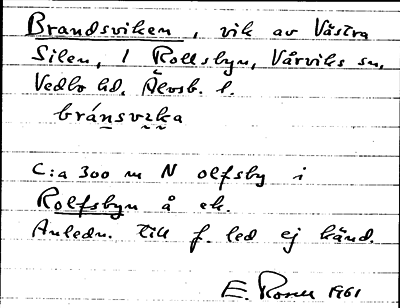 Brandsviken, vik av Västra
Silen, i Rolfsbyn, Vårviks sn,
Vedbo hd, Älvsb. l.
bránsvika
C:a 300 m N olfsby i
Rolfsbyn å ek.
Anledn. till f. led ej känd.
E. 1961